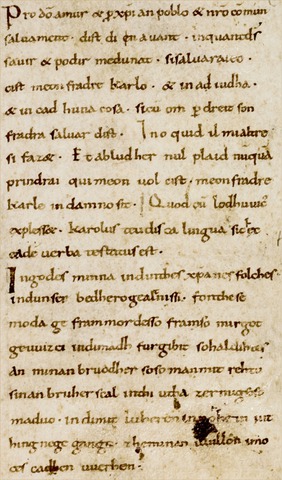 Pro dō amur & p xp̄ian poblo & nrō cōmun
saluament. dist di en auant. inquantds̄
sauir & podir medunat. sisaluaraieo.
cist meon fradre Karlo. & in ad iudha.
& in cad huna cosa. sicū om p dreit son
fradra saluar dist. Ino quid il mialtre
si faz&. Et abludher nul plaid nūquā
prindrai qui meon uol cist. meon fradre
Karle in damno sit. Quod cū lodhuuic
explesset. Karolus teudisca lingua sic &c
eadē uerba testatus est.
Ingodes minna indinthes xp̄anes folches
indunser bedhero gealtnissi. fonthese
moda ge frammordesso framso mirgot
geuuizci indimadh furgibit sohaldihtes
an minan bruodher soso manmit rehtu
sinan bruher scal inthi utha zermigsoso
maduo. indimit luheren
hing nege gango. zheminan uuillon imo
ces cadhen uuerhen.